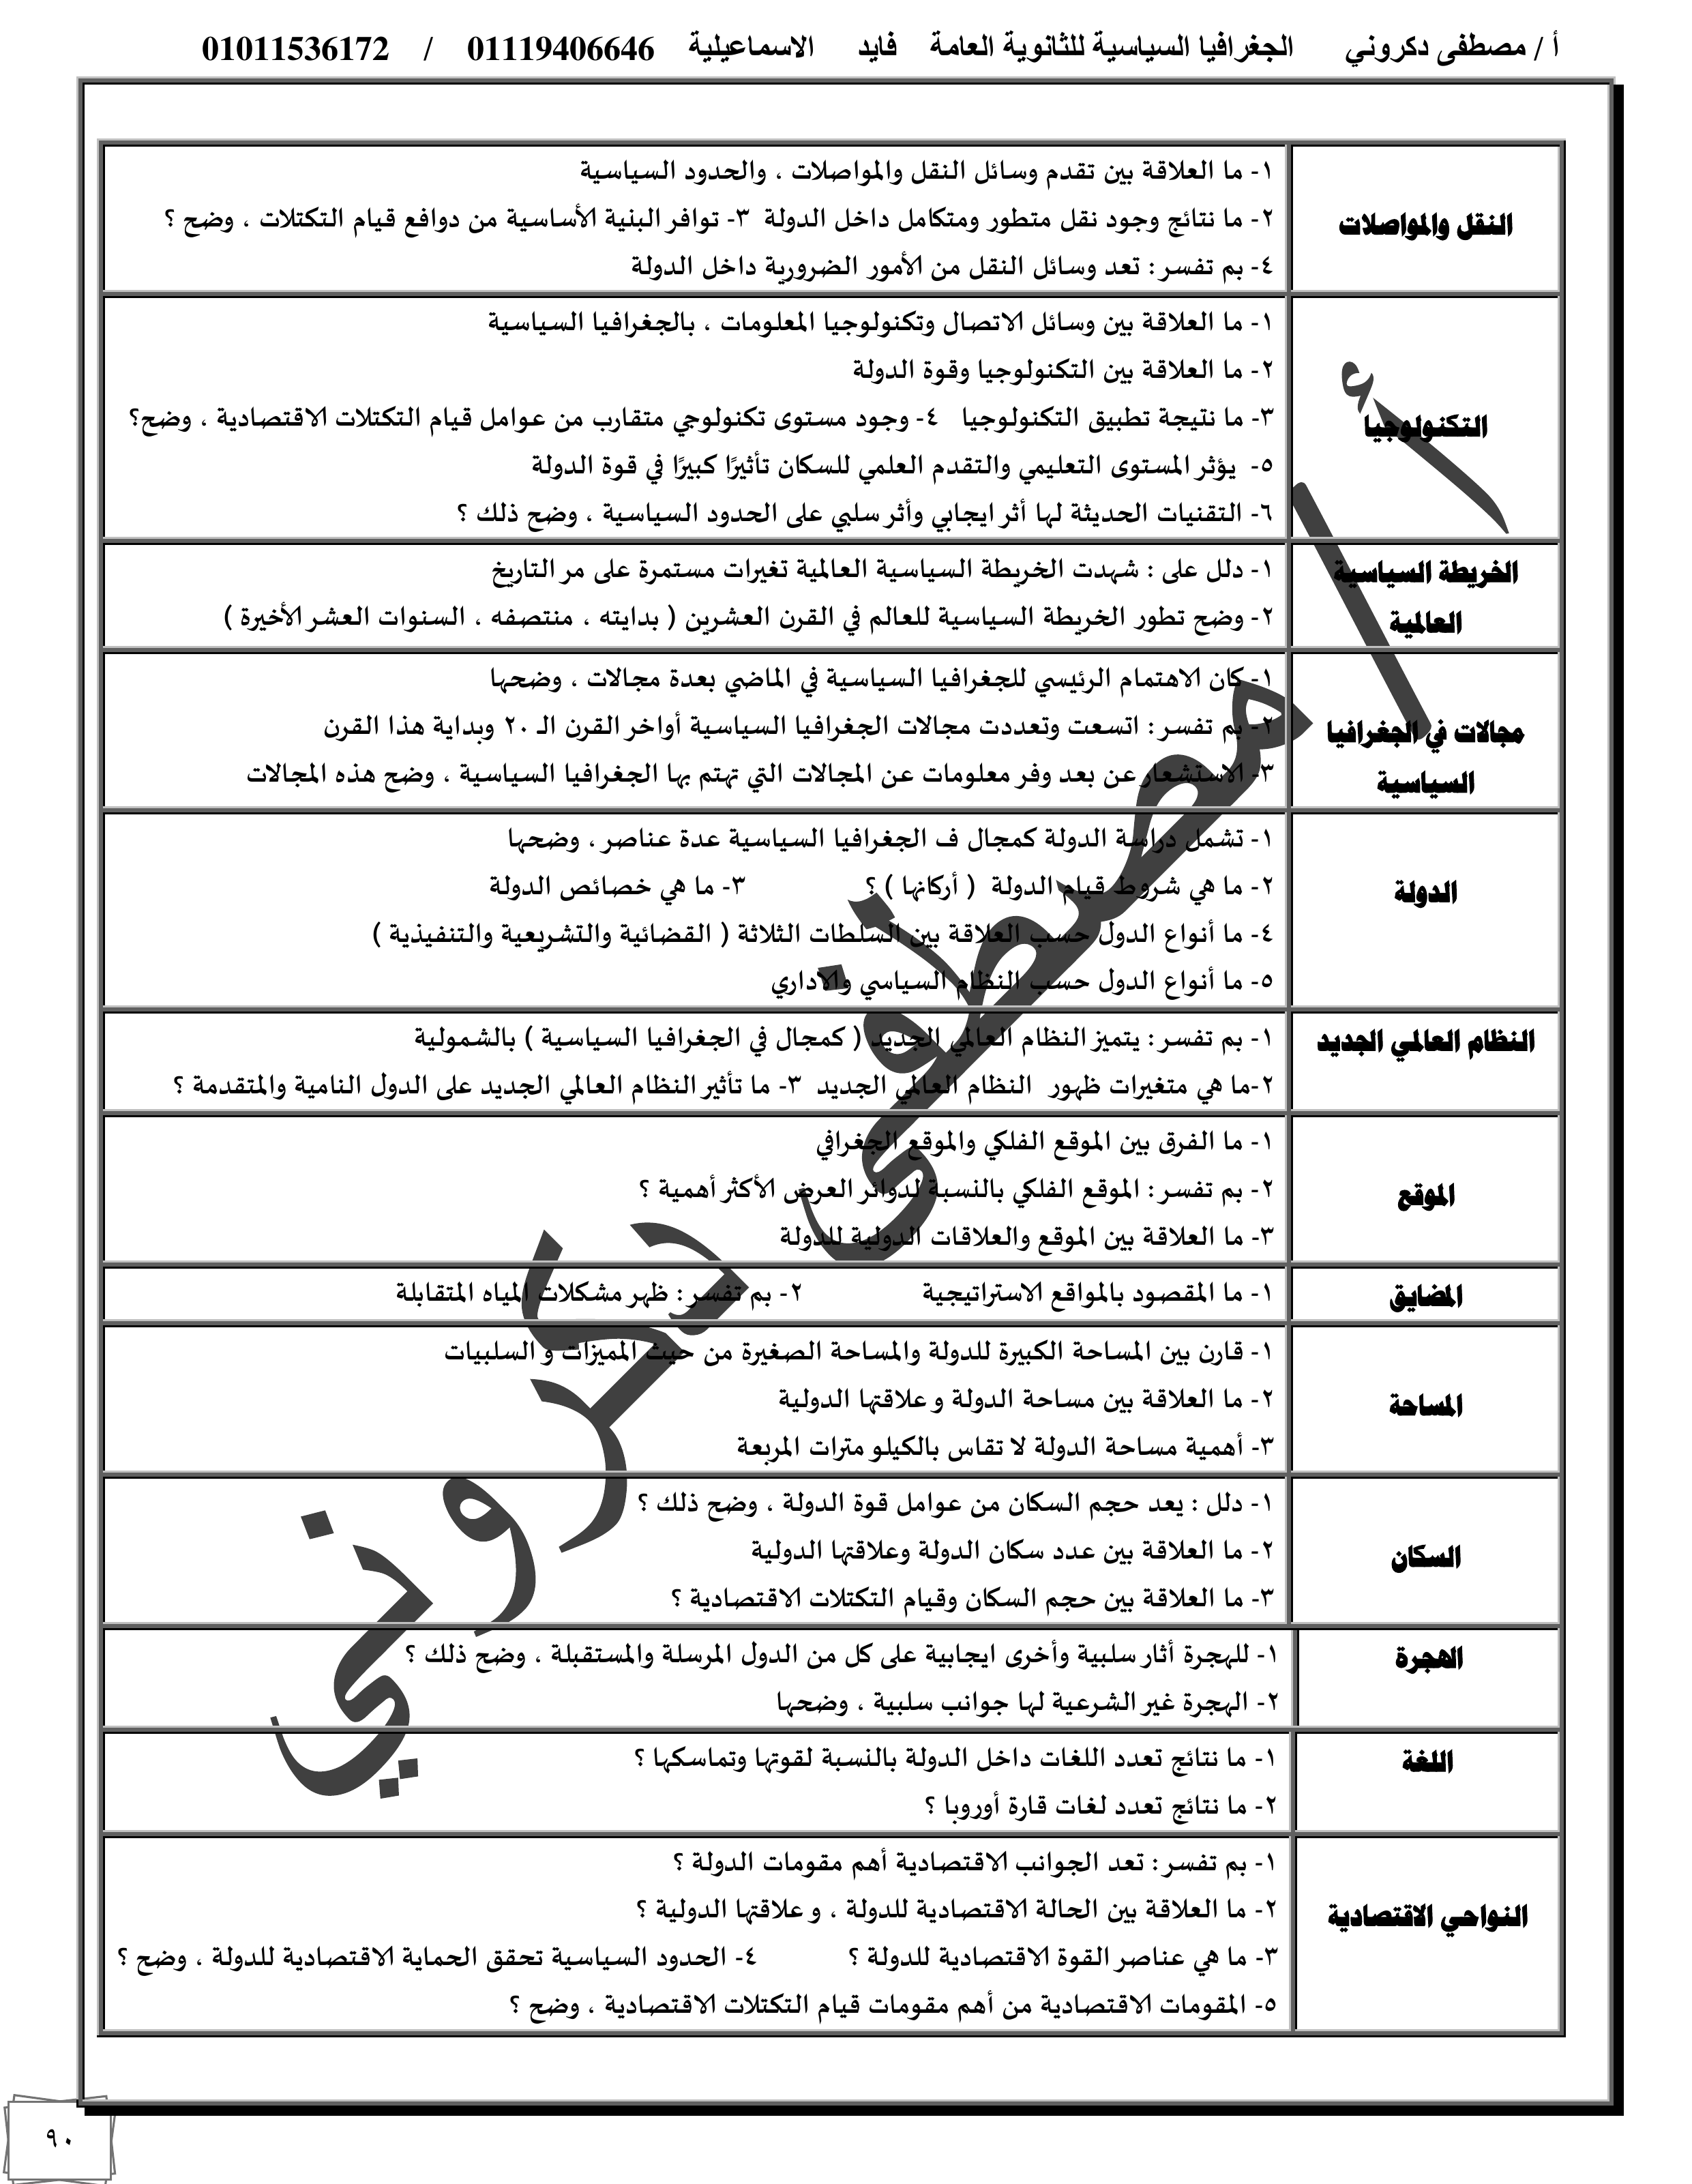 أ / مصطفى دكروني الجغرافيا السياسية للثانوية العامة فايد الاسماعيلية 01119406646 / 01011536172
النقل والمواصلات
١- ما العلاقة بين تقدم وسائل النقل والمواصلات ، والحدود السياسية
٢- ما نتائج وجود نقل متطور ومتكامل داخل الدولة ٣- توافر البنية الأساسية من دوافع قيام التكتلات ، وضح ؟
٤- بم تفسر : تعد وسائل النقل من الأمور الضرورية داخل الدولة
التكنولوجيا
١- ما العلاقة بين وسائل الاتصال وتكنولوجيا المعلومات ، بالجغرافيا السياسية
٢- ما العلاقة بين التكنولوجيا وقوة الدولة
٣- ما نتيجة تطبيق التكنولوجيا ٤- وجود مستوى تكنولوجي متقارب من عوامل قيام التكتلات الاقتصادية ، وضح؟
٥- يؤثر المستوى التعليمي والتقدم العلمي للسكان تأثيرًا كبيرًا في قوة الدولة
٦- التقنيات الحديثة لها أثر ايجابي وأثر سلبي على الحدود السياسية ، وضح ذلك ؟
الخريطة السياسية
العالمية
١- دلل على : شهدت الخريطة السياسية العالمية تغيرات مستمرة على مر التاريخ
٢- وضح تطور الخريطة السياسية للعالم في القرن العشرين ( بدايته ، منتصفه ، السنوات العشر الأخيرة )
مجالات في الجغرافيا
السياسية
١- كان الاهتمام الرئيسي للجغرافيا السياسية في الماضي بعدة مجالات ، وضحها
٢- بم تفسر : اتسعت وتعددت مجالات الجغرافيا السياسية أواخر القرن الـ ٢٠ وبداية هذا القرن
٣- الاستشعار عن بعد وفر معلومات عن المجالات التي تهتم بها الجغرافيا السياسية ، وضح هذه المجالات
الدولة
١- تشمل دراسة الدولة كمجال ف الجغرافيا السياسية عدة عناصر ، وضحها
٢- ما هي شروط قيام الدولة ( أركانها ) ؟ ٣- ما هي خصائص الدولة
٤- ما أنواع الدول حسب العلاقة بين السلطات الثلاثة ( القضائية والتشريعية والتنفيذية )
٥- ما أنواع الدول حسب النظام السياسي والاداري
النظام العالمي الجديد
١- بم تفسر : يتميز النظام العالمي الجديد ( كمجال في الجغرافيا السياسية ) بالشمولية
٢-ما هي متغيرات ظهور النظام العالمي الجديد ٣- ما تأثير النظام العالمي الجديد على الدول النامية والمتقدمة ؟
الموقع
١- ما الفرق بين الموقع الفلكي والموقع الجغرافي
٢- بم تفسر : الموقع الفلكي بالنسبة لدوائر العرض الأكثر أهمية ؟
٣- ما العلاقة بين الموقع والعلاقات الدولية للدولة
المضايق
١- ما المقصود بالمواقع الاستراتيجية ٢- بم تفسر : ظهر مشكلات المياه المتقابلة
المساحة
١- قارن بين المساحة الكبيرة للدولة والمساحة الصغيرة من حيث المميزات و السلبيات
٢- ما العلاقة بين مساحة الدولة و علاقتها الدولية
٣- أهمية مساحة الدولة لا تقاس بالكيلو مترات المربعة
السكان
١- دلل : يعد حجم السكان من عوامل قوة الدولة ، وضح ذلك ؟
٢- ما العلاقة بين عدد سكان الدولة وعلاقتها الدولية
٣- ما العلاقة بين حجم السكان وقيام التكتلات الاقتصادية ؟
الهجرة
١- للهجرة أثار سلبية وأخرى ايجابية على كل من الدول المرسلة والمستقبلة ، وضح ذلك ؟
٢- الهجرة غير الشرعية لها جوانب سلبية ، وضحها
اللغة
١- ما نتائج تعدد اللغات داخل الدولة بالنسبة لقوتها وتماسكها ؟
٢- ما نتائج تعدد لغات قارة أوروبا ؟
النواحي الاقتصادية
١- بم تفسر : تعد الجوانب الاقتصادية أهم مقومات الدولة ؟
٢- ما العلاقة بين الحالة الاقتصادية للدولة ، و علاقتها الدولية ؟
٣- ما هي عناصر القوة الاقتصادية للدولة ؟ ٤- الحدود السياسية تحقق الحماية الاقتصادية للدولة ، وضح ؟
٥- المقومات الاقتصادية من أهم مقومات قيام التكتلات الاقتصادية ، وضح ؟
أ / مصطفى دكروني
٩٠